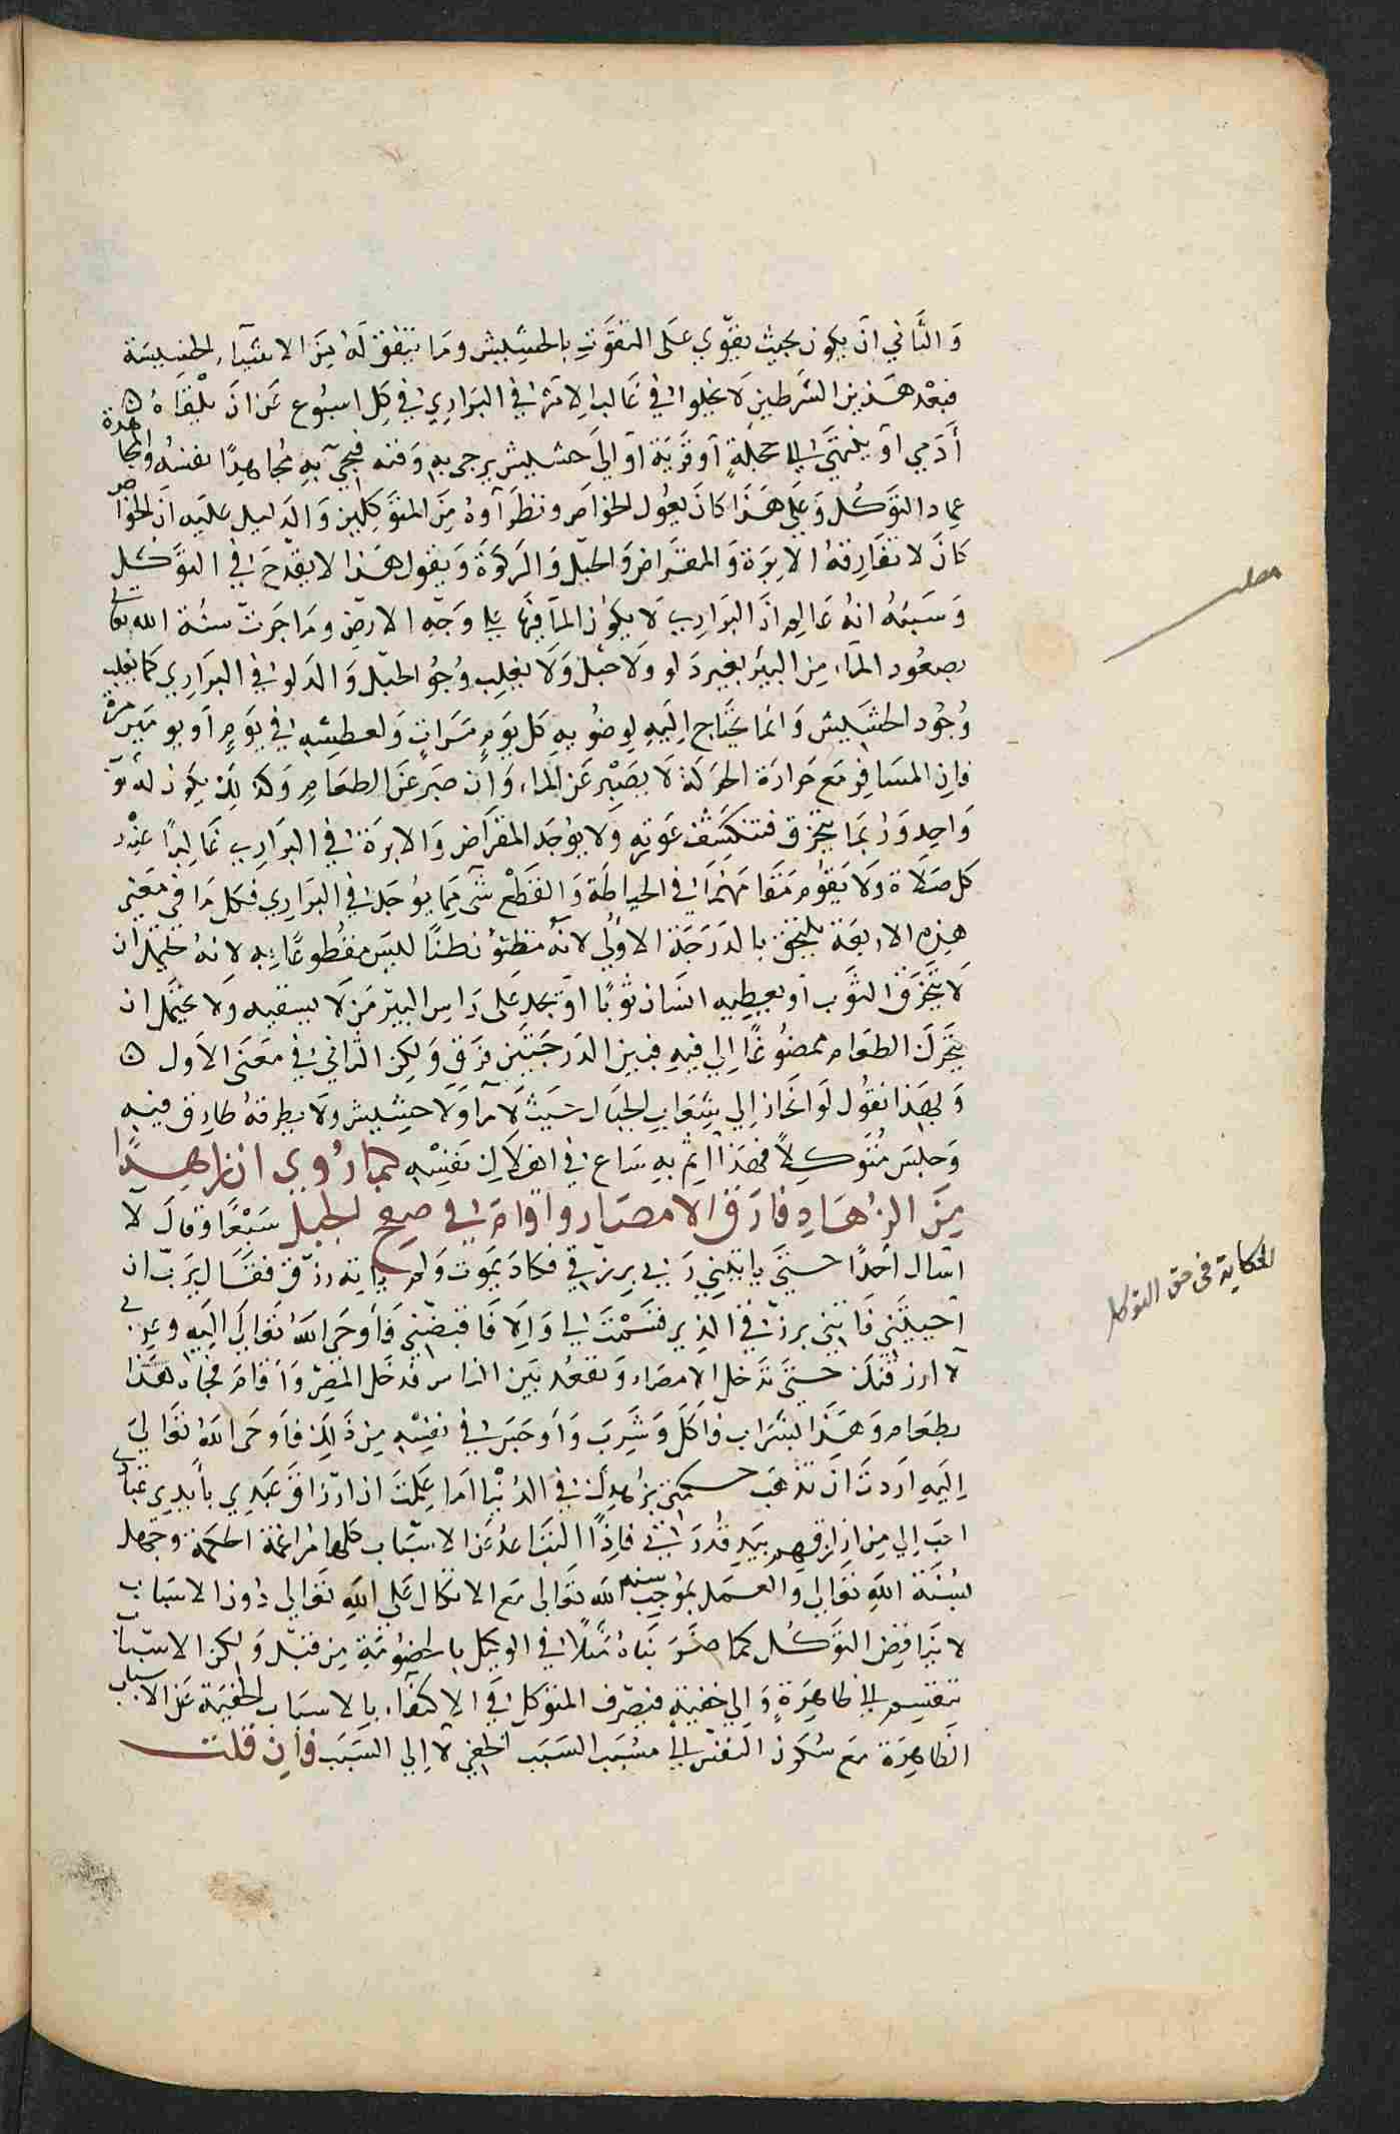 وَالثَّاني أن يكون بحيث يقوّي على التقوّت بالحشيش وما يتفق له من الاشيآء الخسيسة
فبعد هذين الشرطين لا يخلوا في غالب الامر في البراري في كل اسبوع عن أن يلقاه
أدمي أو ينتهي الى محلة أو قرية أو الى حشيش يرجى به وقته فيحيى به مجاهدًا نفسه والمجاهدة
عماد التوكل وعلى هذا كان يعول الخواص ونظرآوه من المتوكلين والدليل عليه أن الخواص
كان لا تفارقه الابرة والمقراض والحبل والركوة ويقول هذا لا يقدح في التوكل
وسببه انه عالم ان البراري لا يكون المآ فيها على وجه الارض وما جرت سنة الله تعالى
بصعود المآء من البير بغير دلو ولا حبل ولا يغلب وجود الحبل والدلو في البراري كما يغلب
وجود الحشيش وانما يحتاج اليه لوضويه كل يوم مرات ولعطشه في يوم أو يومين مرة
فان المسافر مع حرارة الحركة لا يصبر عن المآء وان صبر عن الطعام وكذلك يكون له ثوب
واحد وربما يتخرق فتنكشف عورته ولا يوجد المقراض والابرة في البراري غالبًا عند
كل صلاة ولا يقوم مقامهما في الخياطة والقطع شي مما يوجد في البراري فكل ما في معنى
هذه الاربعة يلتحق بالدرجة الاولى لانه مظنون ظنًا ليس مقطوعًا به لانه يحتمل ان
لا يتخرق الثوب أو يعطيه انسان ثوبًا أو يجد على راس البير من لا يسقيه ولا يحتمل ان
يتحرك الطعام ممضوغًا الى فيه فبين الدرجتين فرق ولكن الثاني في معنى الأول
ولهذا نقول لو انحاز الى شعاب الجبال حيث لا مآ ولا حشيش ولا يطرقه طارق فيه
وجلس متوكلًا فهذا اثم به ساع في اهلاك نفسه كما روي ان زاهدًا
من الزهاد فارق الامصار واقام في صفح الجبل سبعًا وقال لا
اسال احدًا حتى ياتيني ربي برزقي فكاد يموت ولم ياته رزق فقال يرب ان
احييتني فاتيني برزقي الذي قسمت لي والا فاقبضني فأوحى الله تعالى اليه وعزتي
لا ارزقنك حتى تدخل الامصار وتقعد بين الناس فدخل المصر واقام فجاه هذا
بطعام وهذا بشراب فاكل وشرب واوجس في نفسه من ذلك فاوحى الله تعالى
اليه اردت ان تذهب حكمتي بزهدك في الدنيا اما علمت ان ارزاق عبدي بأيدي عبادي
احب الي من ان ارزقهم بيد قدرتي فاذًا التباعد عن الاسباب كلها مراغمة الحكمة وجهل
بسنة الله تعالى والعمل بموجب سنة الله تعالى مع الاتكال على الله تعالى دون الاسباب
لا يناقض التوكل كما ضربناه مثلًا في الوكيل بالخصومة من قبل ولكن الاسباب
تنقسم الى ظاهرة والى خفية فيصرف المتوكل في الاكتفآء بالاسباب الخفية عن الاسباب
الظاهرة مع سكون النفس الى مسبب السبب الخفي لا الى السبب فان قلت
الحكاية فى حق التوكل